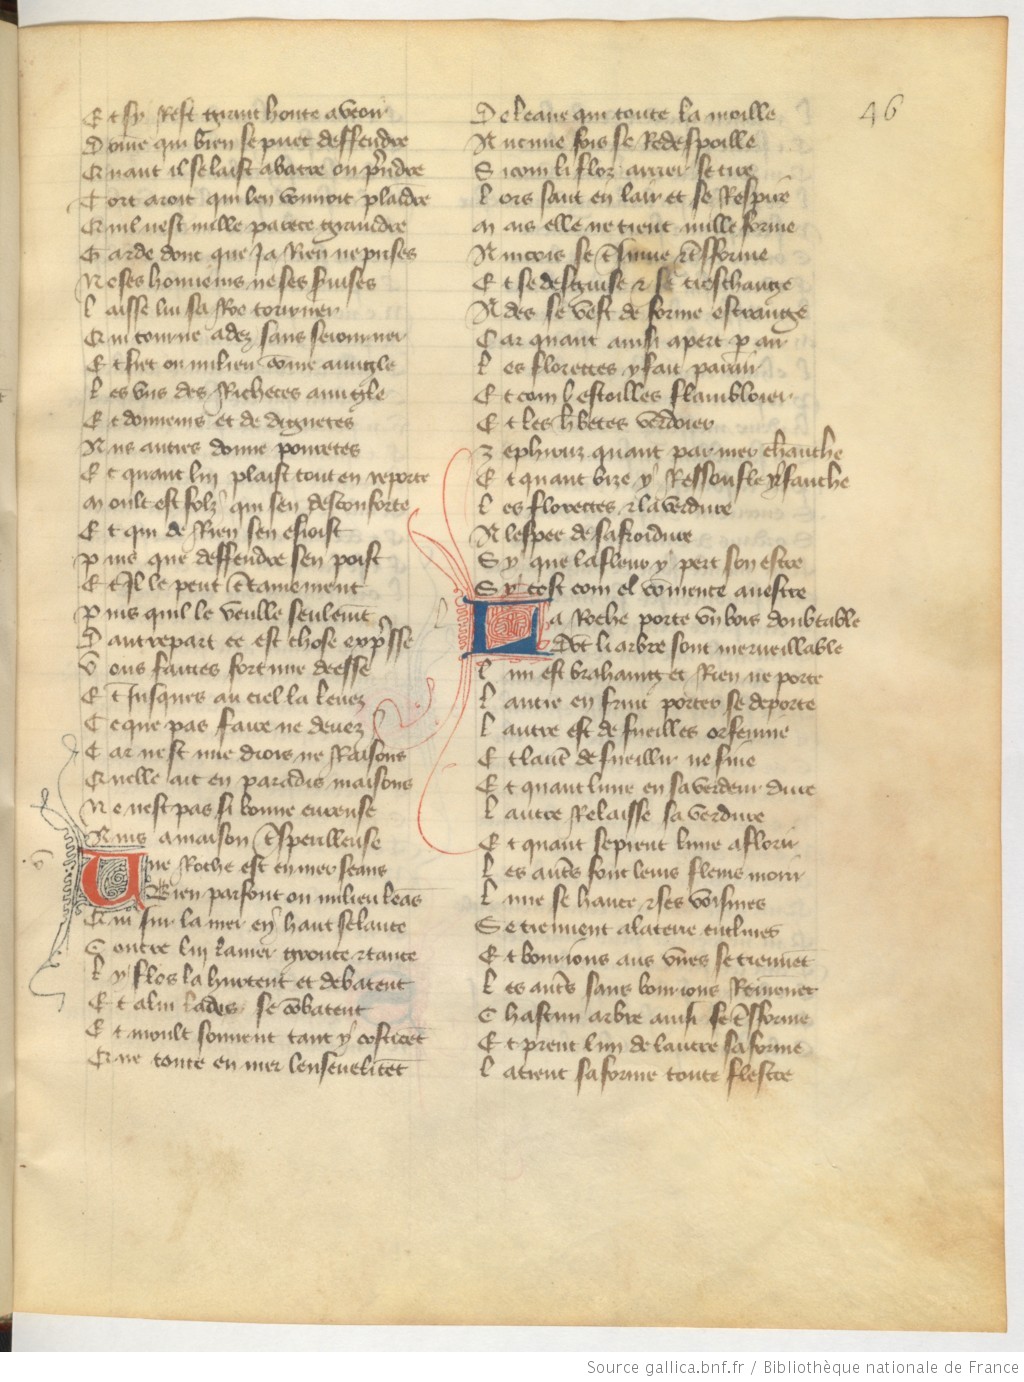 46
Et sy rest grant honte a veoir
Dome qui bien se puet deffendre
Quant il se laist abatre ou prendre
Tort aroit qui len vouroit plaidre
Quil nest nulle parece graindre
Garde dont que ja rien ne prises
Ne ses honneurs ne ses servises
Laisse lui sa roe tourner
Qui tourne adez sans seiourner
Et siet ou milieu come avugle
Les uns des richeces avugle
Et donneurs et de dignetes
Aus autres donne povretes
Et quant lui plaist tout en reporte
Moult est folz qui sen desconforte
Et qui de rien sen esioist
Puis que deffendre sen poist
Et il le peut certainement
Puis quil le veulle seulement
Dautrepart ce est chose expresse
Vous faites fortune deesse
Et jusques au ciel la levez
Ce que pas faire ne devez
Car nest mie drois ne raisons
Quelle ait en paradis maisons
Ne nest pas si bonne eureuse
Ains a maison tresperilleuse
Une roche est en mer seans
Bien parfont ou milieu leans
Qui sur la mer en hault se lance
Contre lui la mer gronce et tance
Ly flos la hurtent et debatent
Et a lui lades se combatent
Et moult souvent tant y
Que toute en mer
De leaue qui toute la moille
Aucune fois se redespoille
Sicom li floz arrier se tire
Lors saut en lair et se respire
Mais elle ne tient nulle forme
Aincois se tresmue et transforme
Et se desguise et se treschange
Ades se vest de forme estrange
Car quant ainsi apert par air
Les florettes y fait parair
Et com lestoilles flamboier
Et les herbetes verdoier
Zephiruz quant par mer chauche
Et quant bize y ressoufle y fauche
Les florettes et la verdure
A lespee de sa froidure
Sy que la fleur y pert son estre
Sy tost com el commence a nestre
La roche porte un bois doubtable
Dont li arbre sont merveillable
Lun est brahaing et rien ne porte
Lautre en fruit porter se deporte
Lautre est de fueilles orfenine
Et lautre de fueillir ne fine
Et quant lune en sa verdeur dure
Lautre relaisse sa verdure
Et quant se prent lune a florir
Les autres font leurs fleurs morir
Lune se hauce et ses voisines
Se tiennent a la terre enclines
Et bourions aus unes se tiennent
Les autres sans bourions
Chascun arbre ainsi se transforme
Et prent lun de lautre sa forme
La tient sa forme toute flestre
Source gallica.bnf.fr / Bibliothèque nationale de France